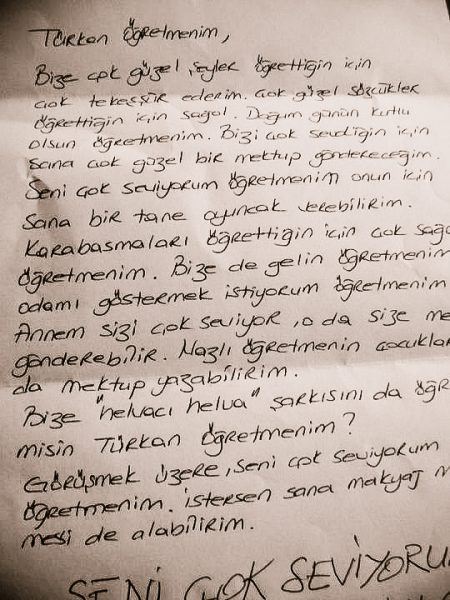 Türkan Öğretmenim,
Bize çok güzel şeyler öğrettiğin için
çok teşekkür ederim. Çok güzel sözcükler
öğrettiğin için sağol. Doğum günün kutlu
olsun öğretmenim. Bizi çok sevdiğin için
sana çok güzel bir mektup göndereceğim.
Seni çok seviyorum öğretmenim onun için
sana bir tane oyuncak verebilirim.
Karabasmaları öğrettiğin için çok sağo
öğretmenim. Bize de gelin öğretmenim
odamı göstermek istiyorum öğretmenim
Annem sizi çok seviyor, o da size me
gönderebilir. Nazlı öğretmenin çocuklar
da mektup yazabilirim.
Bize "helvacı helva" şarkısını da öğr
misin Türkan Öğretmenim?
Görüşmek üzere, seni çok seviyorum
öğretmenim. İstersen sana makyaj m
mesi de alabilirim.
SENİ ÇOK SEVİYORU